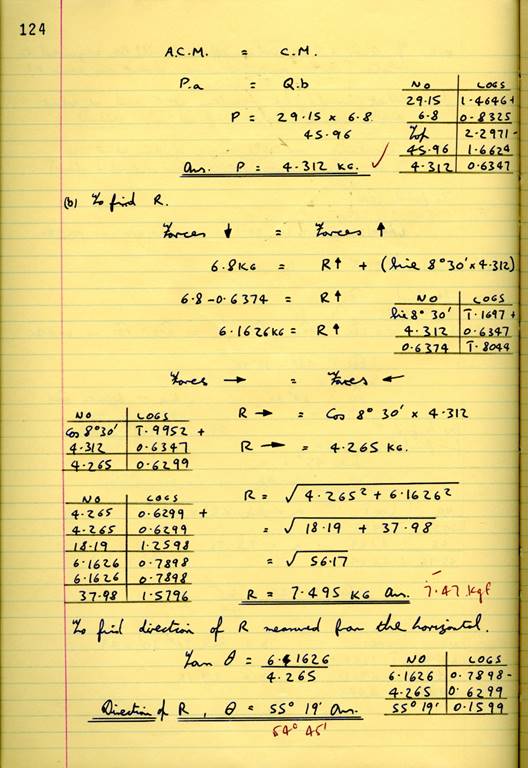 124
A.C.M. = C.M.
P.a = Q.b
P = 29.15 × 6.8
45.96
Ans. P = 4.312 KG. ✓
NO LOGS
29.15 1.4646+
6.8 0.8325
Top 2.2971-
45.96 1.6624
4.312 0.6347
(b) To find R.
Forces ↓ = Forces ↑
6.8KG = R↑ + (Sine 8°30'×4.312)
6.8-0.6374 = R↑
6.1626KG = R↑
NO LOGS
Sin 8° 30' T.1697 +
4.312 0.6347
0.6374 T.8044
Forces → = Forces ←
R → = Cos 8° 30' × 4.312
R → = 4.265 KG.
NO LOGS
Cos 8°30' T.9952 +
4.312 0.6347
4.265 0.6299
R = √4.265² + 6.1626²
= √18.19 + 37.98
= √56.17
R = 7.495 KG Ans. 7.47 kgf
NO LOGS
4.265 0.6299 +
4.265 0.6299
18.19 1.2598
6.1626 0.7898
6.1626 0.7898
37.98 1.5796
To find direction of R measured from the horizontal.
Tan θ = 6.1626
4.265
Direction of R, θ = 55° 19' Ans.
54° 45'
NO LOGS
6.1626 0.7898-
4.265 0.6299
55° 19' 0.1599